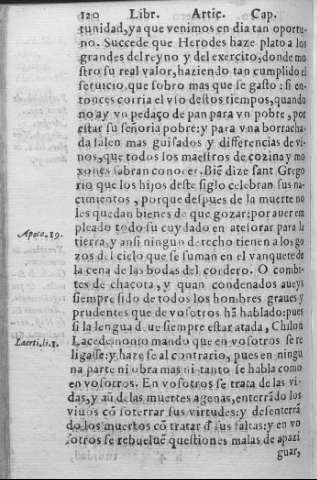 120 Libr. Artic. Cap.
tunidad, ya que venimos en dia tan oportu-
no. Succede que Herodes haze plato a los
grandes del reyno y del exercito, donde mo
stro su real valor, haziendo tan cumplido el
seruicio, que sobro mas que se gasto: si en-
tonces corria el vio destos tiempos, quando
no ay vn pedaço de pan para vn pobre, por
estar su señoria pobre: y para vna borracha-
da salen mas guisados y differencias de vi-
nos, que todos los maestros de cozina y mo
xones sabran conocer. Biẽ dize sant Grego
rio que los hijos deste siglo celebran sus na-
cimientos, porque despues de la muerte no
les quedan bienes de que gozar: por auer em
pleado todo su cuydado en atesorar para la
Apoca. 19.
tierra, y ansi ningun derecho tienen a los go-
zos del cielo que se suman en el vanquete de
la cena de las bodas del cordero. O combi-
tes de chacota, y quan condenados aueys
siempre sido de todos los hombres graues y
prudentes que de vosotros hã hablado: pues
si la lengua deue siempre estar atada, Chilon
Laerti. li. 1.
Lacedemonio mando que en vosotros se re
ligasse: y haze se al contrario, pues en ningu
na parte ni obra mas ni tanto se habla como
en vosotros. En vosotros se trata de las vi-
das, y aũ de las muertes agenas, enterrãdo los
viuos cõ soterrar sus virtudes: y desenterrã
do los muertos cõ tratar đ sus faltas: y en vo
sotros se rebueluẽ questiones malas de apazi
guar,